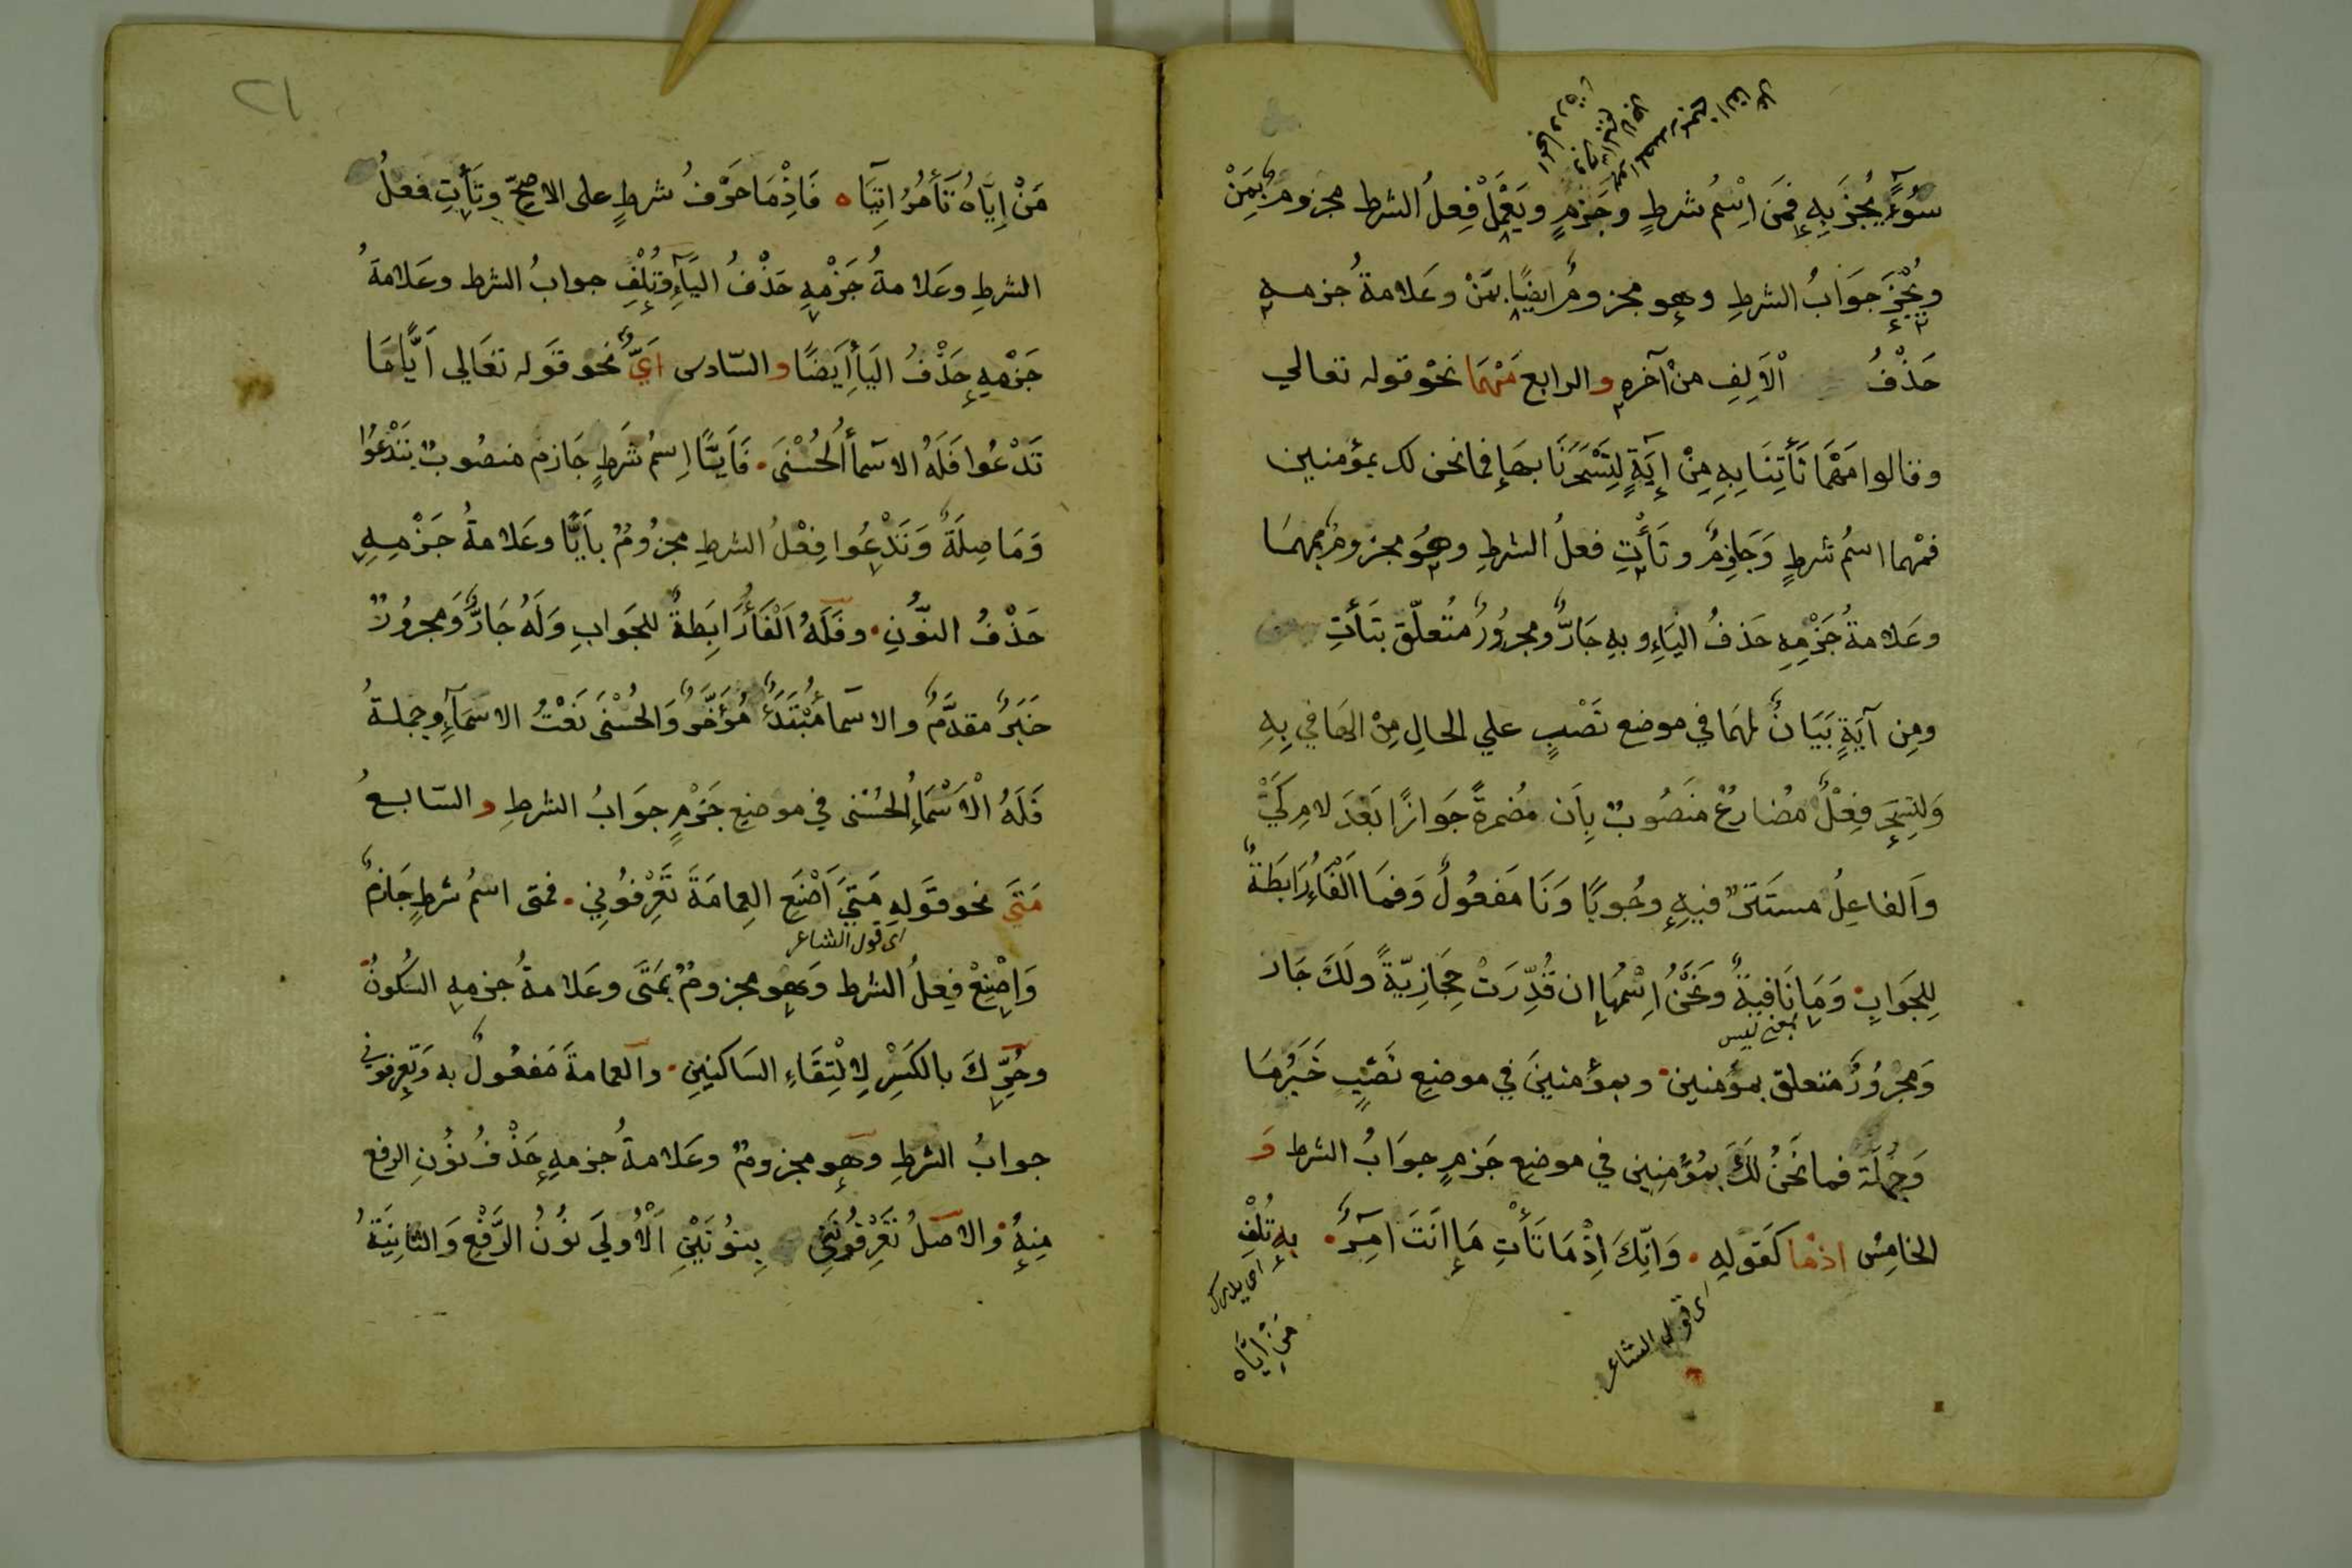 سُوءًا يُجْزَ بِهِ فَمَن اسْمُ شرطٍ وجَزمٍ ويَعْمَلْ فِعلُ الشرط مجزومٌ بِمَنْ
ويُجْزَ جَوَابُ الشرطِ وهو مجزومٌ ايضًا بمَنْ وعَلامةُ جزمه
حَذْفُ الْاَلِفِ مِنْ آخره والرابع مَهْمَا نحْو قوله تعالي
وقالوا مَهْمَا تَأتِنَا بِهِ مِنْ اٰيَةٍ لِتَسْحَرَنَا بها فما نحن لك بمؤمنين
فمهما اسمُ شرطٍ وَجَازِمٌ وتَأْتِ فعلُ الشرطِ وهُوَ مجزومٌ بمهمَا
وعَلامةُ جَزْمِهِ حَذفُ اليَاءِ وبِهِ جَارٌّ ومجرُورٌ مُتعلّق بتَأتِ
ومِن آيَةٍ بَيَانٌ لمهمَا في موضع نَصْبٍ علي الحالِ مِنْ الهَا في بِهِ
وَلِتسحَرَ فِعْلٌ مُضارعٌ مَنصُوبٌ بِاَن مُضمرةً جَوازًا بَعدَ لامِ كَيْ
وَالفاعِلُ مستَترٌ فيهِ وجُوبًا وَنَا مَفعُولٌ وَفمَا الفَاءُ رَابَطَةٌ
لِلجَوَابِ وَمَا نَافيَةٌ ونَحْنُ اِسْمُها ان قُدِّرَتْ حِجَازِيّةً ولَكَ جَار
بمعنى ليس
وَمجرُورٌ متعلق بمؤمنين وبمؤمنينَ في موضعِ نَصْبٍ خَبَرُ مَا
وَجُملَة فما نَحْنُ لَكَ بمُؤمِنِين في موضعِ جَزمٍ جوَابُ الشرط وَ
الخامِسُ اذْما كقَولِهِ وَاِنّكَ اِذْمَا تَأتِ مَا اَنتَ اٰمِرٌ بِهِ تُلْفِ
اي قول الشاعر
مَن اِيَّاه
٢١
مَنْ اِيَّاهُ تَأمُرُ اٰتِيًا فَاذْمَا حَرْفُ شرطٍ على الاصحّ وتَأتِ فعلُ
الشرطِ وعَلامةُ جَزْمِهِ حَذْفُ اليَاءِ وتُلْفِ جوابُ الشرط وعَلامَةُ
جَزْمِهِ حَذْفُ اليَاءِ اَيضًا والسّادس اَيٌّ نحو قَوله تعَالى اَيًّا مَا
تَدْعُوا فَلَهُ الاسمآءُ الحُسْنَى فَاَيًّا اِسمُ شَرطٍ جَازم منصُوبٌ بتَدْعُوا
وَمَا صِلَةٌ وَتَدْعُوا فِعْلُ الشرطِ مجزُومٌ بِاَيًّا وعَلامةُ جَزْمِهِ
حَذْفُ النُّونِ وفَلَهُ اَلْفَاءُ رَابَطةٌ للجَوابِ وَلَهُ جَارٌّ وَمجرُورٌ
خَبَرٌ مقدَّمٌ والاسمآءُ مُبْتَدَأٌ مُؤَخَّرٌ وَالحُسْنَى نَعْتُ الاسْمَآءِ وجملةُ
فَلَهُ الْاَسْمَاءُ الحُسْنى في موضعِ جَزْمٍ جوَابُ الشرطِ والسّابعُ
مَتَى نحو قَولِهِ مَتَى اَضَعِ العِمامَةَ تَعْرِفُونِي فمتى اسْمُ شرطٍ جَازمٌ
اى قول الشاعر
وَاضَعْ فِعلُ الشرط وَهو مجزومٌ بمَتَى وعَلامةُ جزمِهِ السُكونُ
وحُرِّكَ بالكَسْرِ لِالْتِقَاءِ السَاكنينِ والعمامةَ مَفعُولٌ به وَتَعرفوني
جوابُ الشرطِ وهو مجزومٌ وعَلامةُ جزمِهِ حَذْفُ نُونِ الرفع
مِنهُ والاصْلُ تَعْرِفُونَنِي بِنُونَيْنِ اَلْاُولَى نُونُ الرَّفْعِ وَالثانِيَةُ